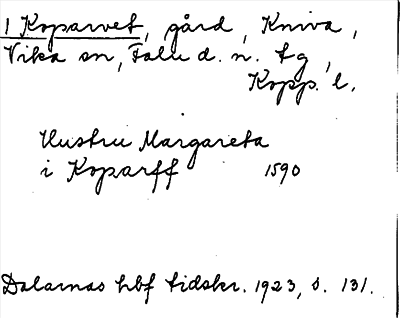 1 Koparvet, gård, Kniva,
Vika sn, Falu d. n. tg,
Kopp. l.
Hustru Margareta
i Koparff 1590
Dalarnas hbf tidskr. 1923, s. 131.